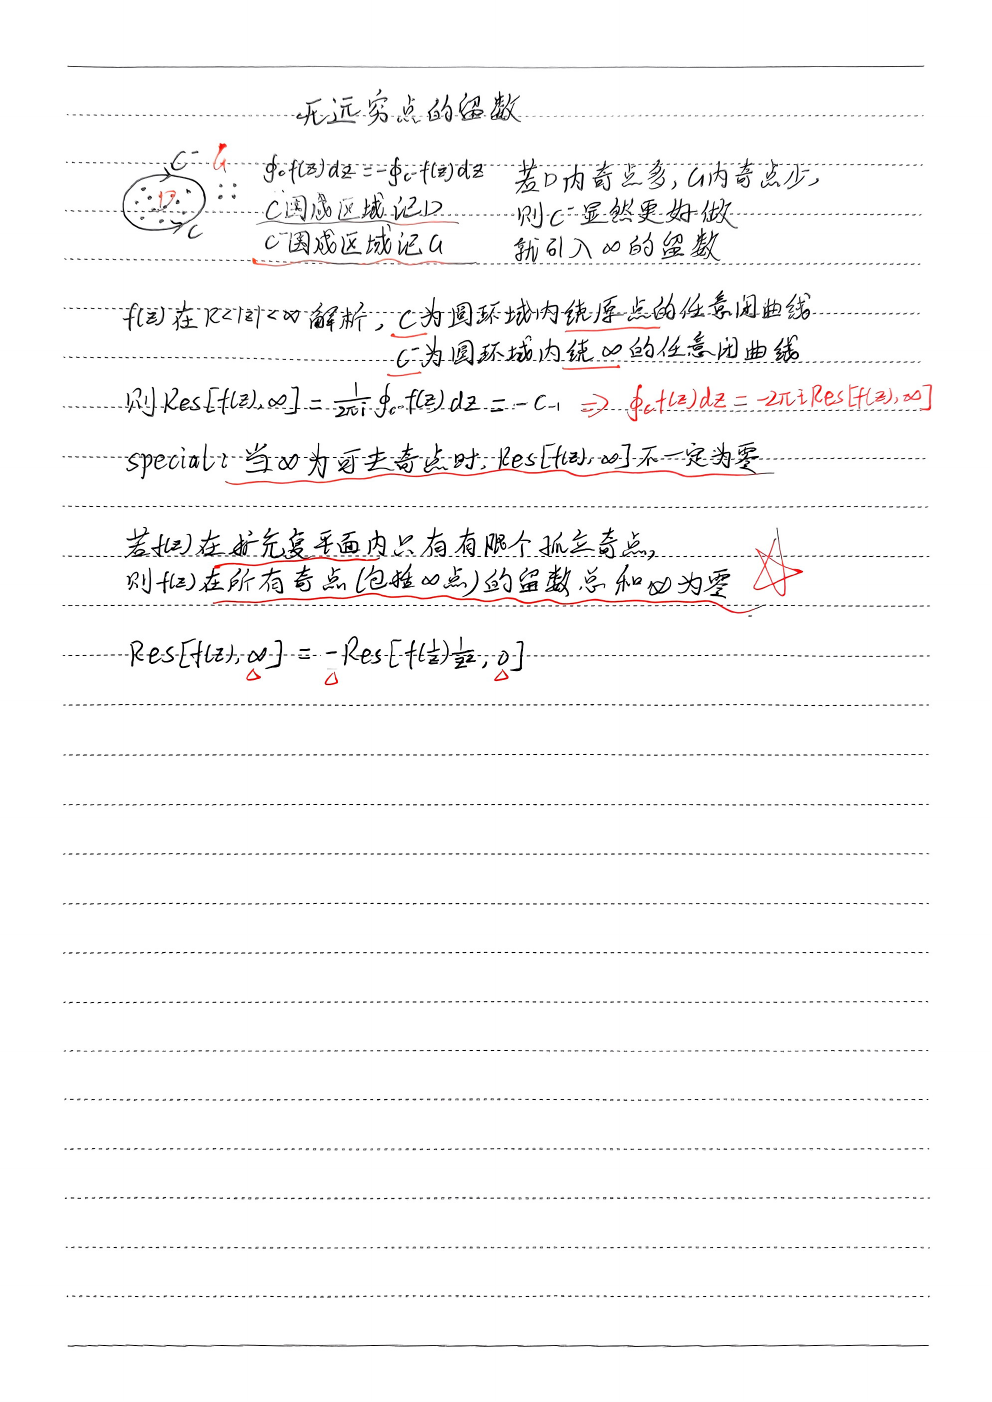 无远穷点的留数
C⁻ G
D
C
∮c f(z)dz=-∮c⁻ f(z)dz
C围成区域记D
C⁻围成区域记G
若D内奇点多, G内奇点少,
则C⁻显然更好做
就引入∞的留数
f(z)在R<|z|<∞解析, C为圆环域内绕原点的任意闭曲线
C⁻为圆环域内绕∞的任意闭曲线
则Res[f(z),∞] = 1/2πi ∮c⁻ f(z)dz = -C₋₁ => ∮c f(z)dz = -2πi Res[f(z),∞]
special: 当∞为可去奇点时, Res[f(z),∞]不一定为零
若f(z)在扩充复平面内只有有限个孤立奇点,
则f(z)在所有奇点(包括∞点)的留数总和必为零
Res[f(z),∞] = -Res[f(1/z)1/z²,0]